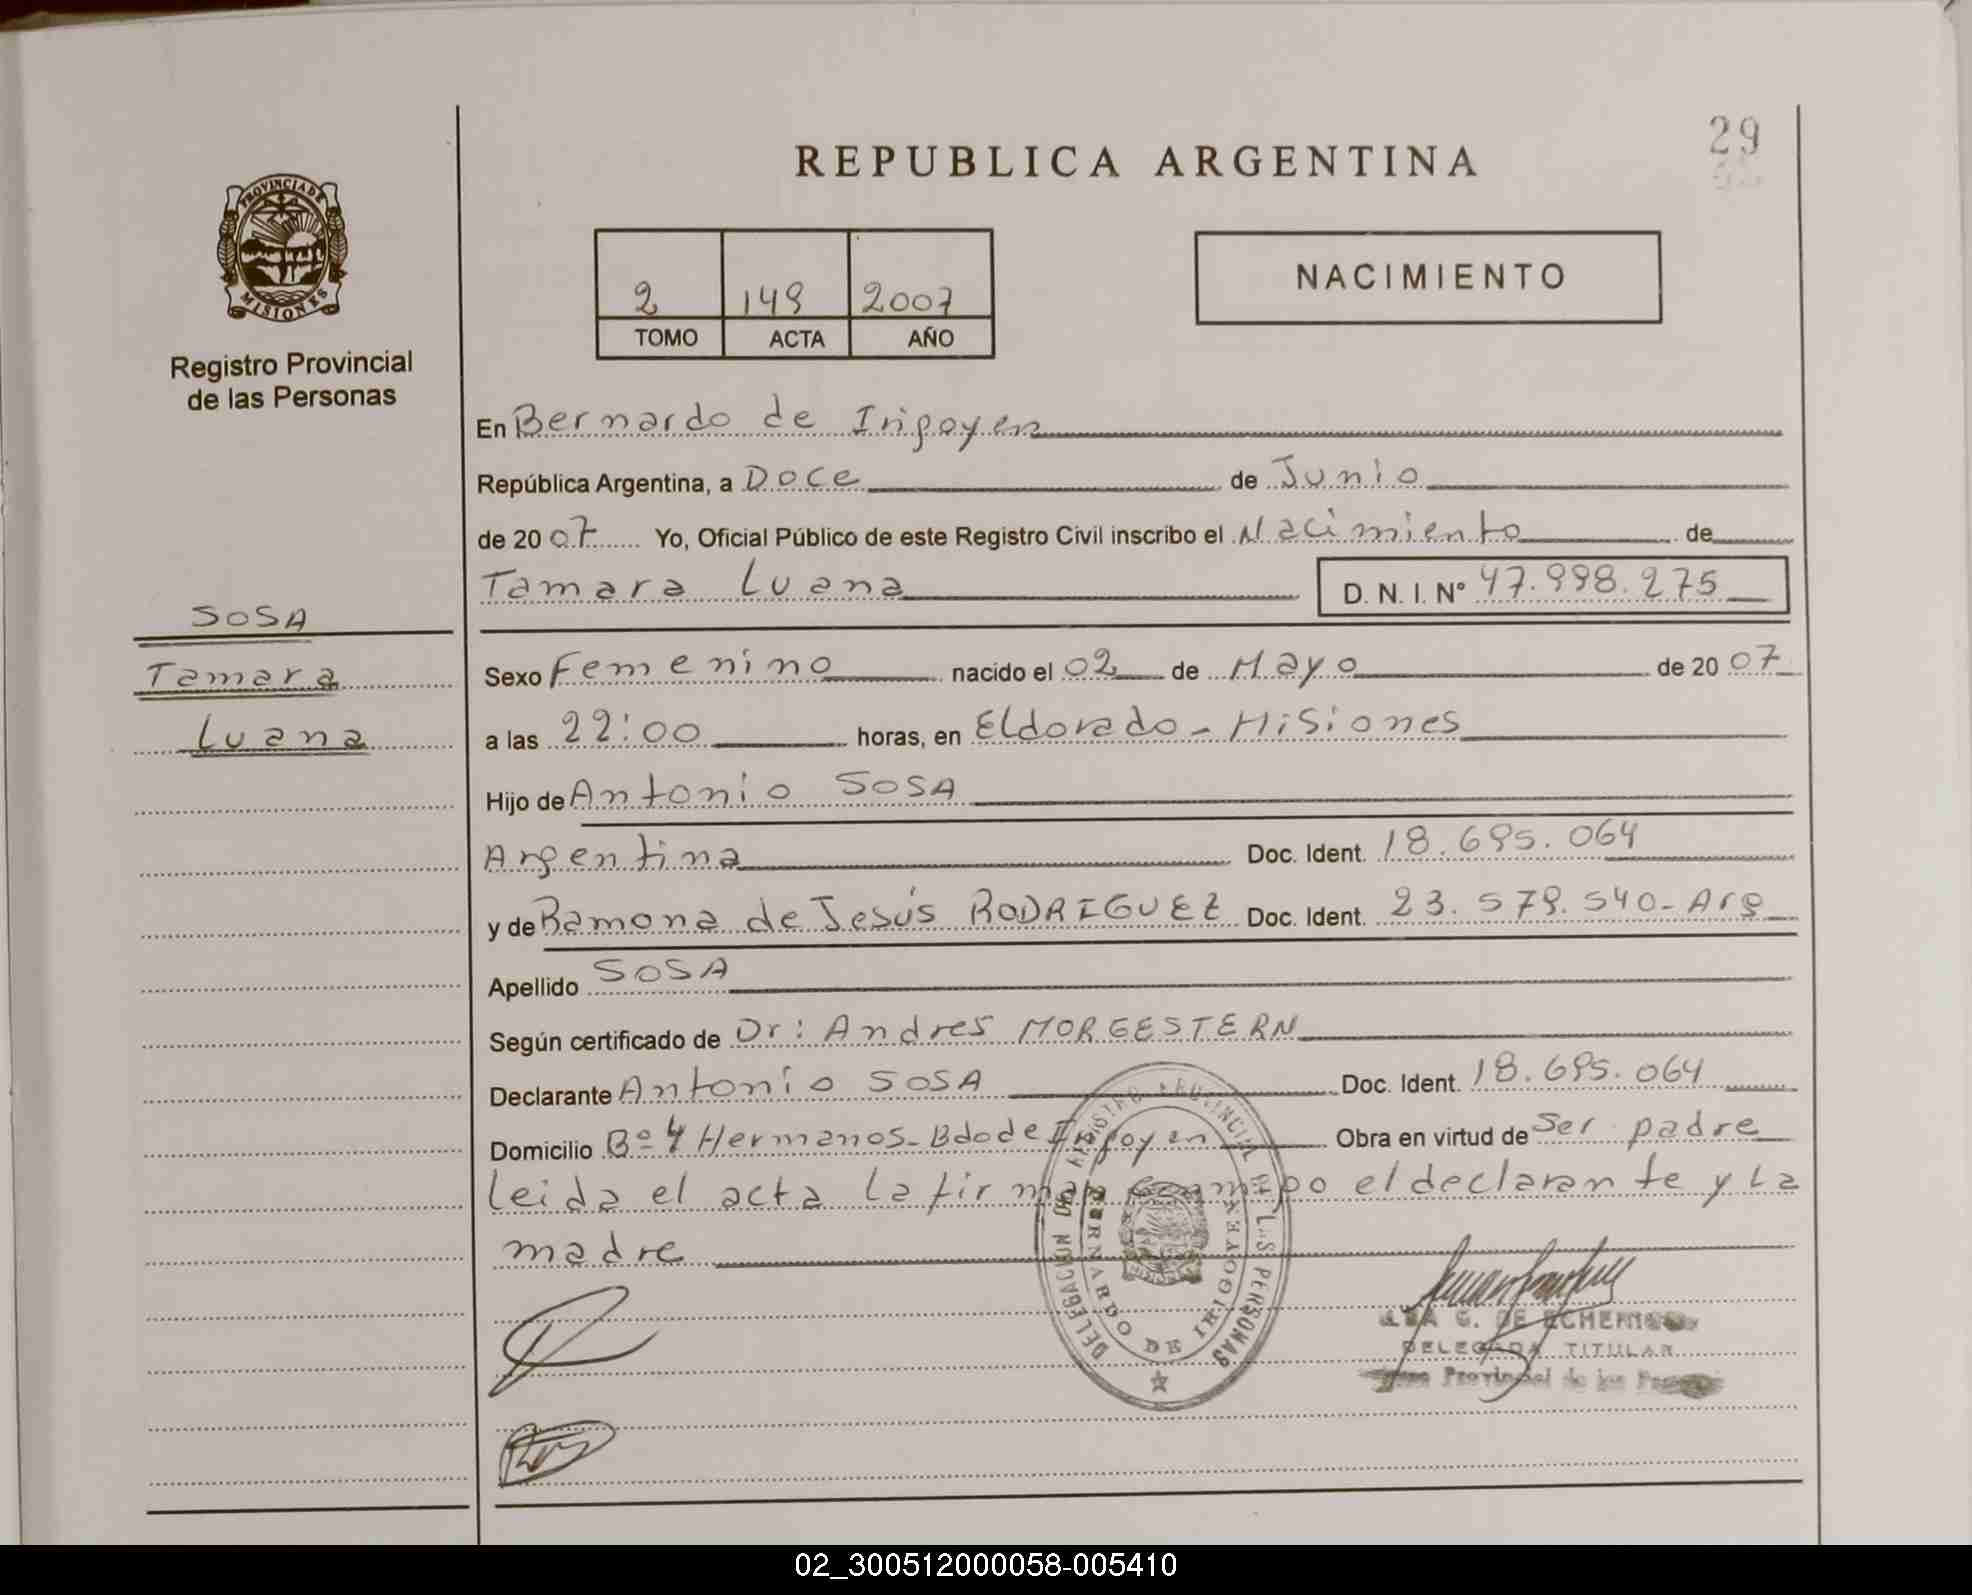 29
REPUBLICA ARGENTINA
PROVINCIA DE
MISIONES
2 149 2007
TOMO ACTA AÑO
NACIMIENTO
Registro Provincial
de las Personas
En Bernardo de Irigoyen
República Argentina, a Doce de Junio
de 20 07 Yo, Oficial Público de este Registro Civil inscribo el Nacimiento de
Tamara Luana D. N. I. Nº 47.998.275
SOSA
Tamara
Luana
Sexo Femenino nacido el 02 de Mayo de 20 07
a las 22:00 horas, en Eldorado - Misiones
Hijo de Antonio SOSA
Argentina Doc. Ident. 18.695.064
y de Ramona de Jesús RODRIGUEZ Doc. Ident. 23.579.540- Arg
Apellido SOSA
Según certificado de Dr: Andres MORGESTERN
Declarante Antonio SOSA Doc. Ident. 18.695.064
Domicilio Bº 4 Hermanos- Bdo de Irigoyen Obra en virtud de Ser padre
Leida el acta La firman conmigo el declarante y La
madre
DELEGACION DEL REGISTRO PROVINCIAL DE LAS PERSONAS
BERNARDO DE IRIGOYEN
G. DE
DELEGADA TITULAR
Provincial de las
02_300512000058-005410